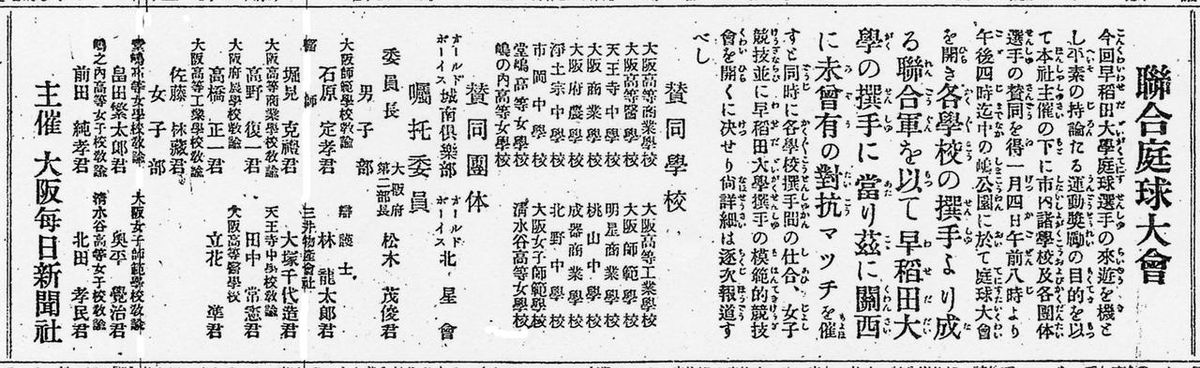 聯合庭球大會
今回早稻田大學庭球選手の來遊を機と
し平素の持論たる運動奬勵の目的を以
て本社主催の下に市内諸學校及各團体
選手の賛同を得一月四日午前八時より
午後四時迄中の嶋公園に於て庭球大會
を開き各學校の撰手より成
る聯合軍を以て早稻田大
學の撰手に當り茲に關西
に未曾有の對抗マッチを催
すと同時に各學校撰手間の仕合、女子
競技並に早稻田大學撰手の模範的競技
會を開くに決せり尚詳細は逐次報道す
べし
賛同學校
大阪高等商業學校 大阪高等工業學校
大阪高等醫學校 大阪師範學校
天王寺中學校 明星商業學校
大阪商業學校 桃山中學校
大阪府農學校 成器商業學校
淨土宗中學校 北野中學校
市岡中學校 大阪女子師範學校
堂嶋高等女學校 淸水谷高等女學校
嶋の内高等女學校
賛同團体
オールドボーイス城南倶樂部 オールドボーイス北星會
囑托委員
委員長 大阪府第二部長 松木茂俊君
男子部
大阪師範學校敎諭 石原定孝君 辯護士 林龍太郎君
醫師 堀見克禮君 三井物産會社 大塚千代造君
大阪高等商業學校敎諭 高野復一君 天王寺中學校敎諭 田中常憲君
大阪府農學校敎諭 高橋正一君 大阪高等醫學校 立花準君
大阪高等工業學校敎諭 佐藤 藏君
女子部
堂嶋高等女學校敎諭 畠田繁太郎君 大阪女子師範學校敎諭 奥平覺治君
嶋之内高等女學校敎諭 前田純孝君 淸水谷高等女學校敎諭 北田孝民君
主催 大阪每日新聞社